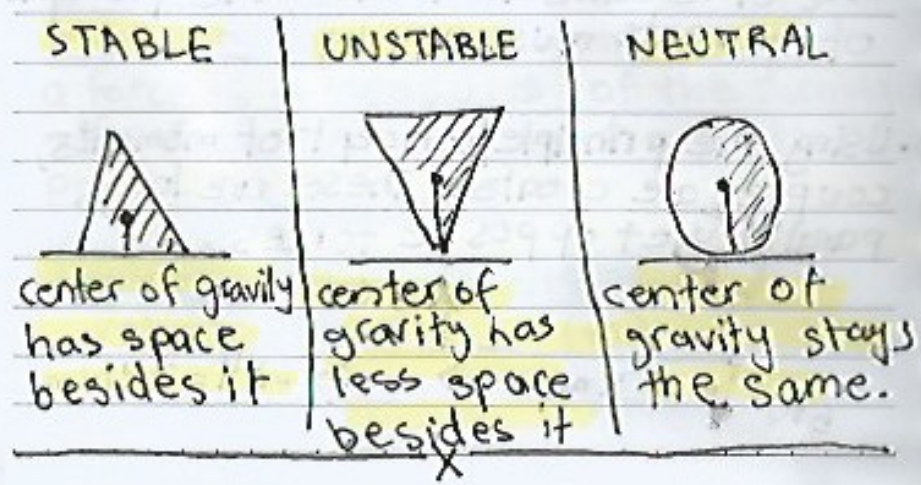 STABLE
center of gravity
has space
besides it
UNSTABLE
center of
gravity has
less space
besides it
NEUTRAL
center of
gravity stays
the same.
X